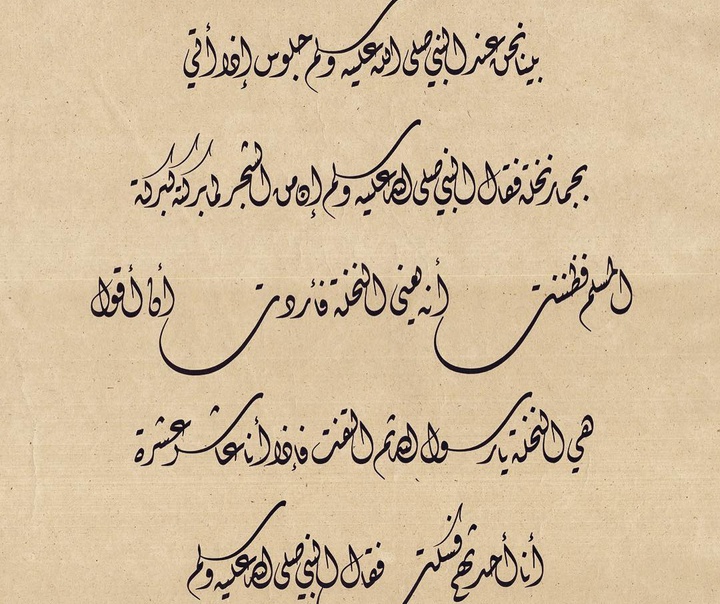 بينا نحن عند النبي صلى الله عليه وسلم جلوس إذا أتي
بجمار نخلة فقال النبي صلى الله عليه وسلم إن من الشجر لما بركته كبركة
المسلم فظننت أنه يعني النخلة فأردت أن أقول
هي النخلة يا رسول الله ثم التفت فإذا أنا عاشر عشرة
أنا أحدثهم فسكت فقال النبي صلى الله عليه وسلم